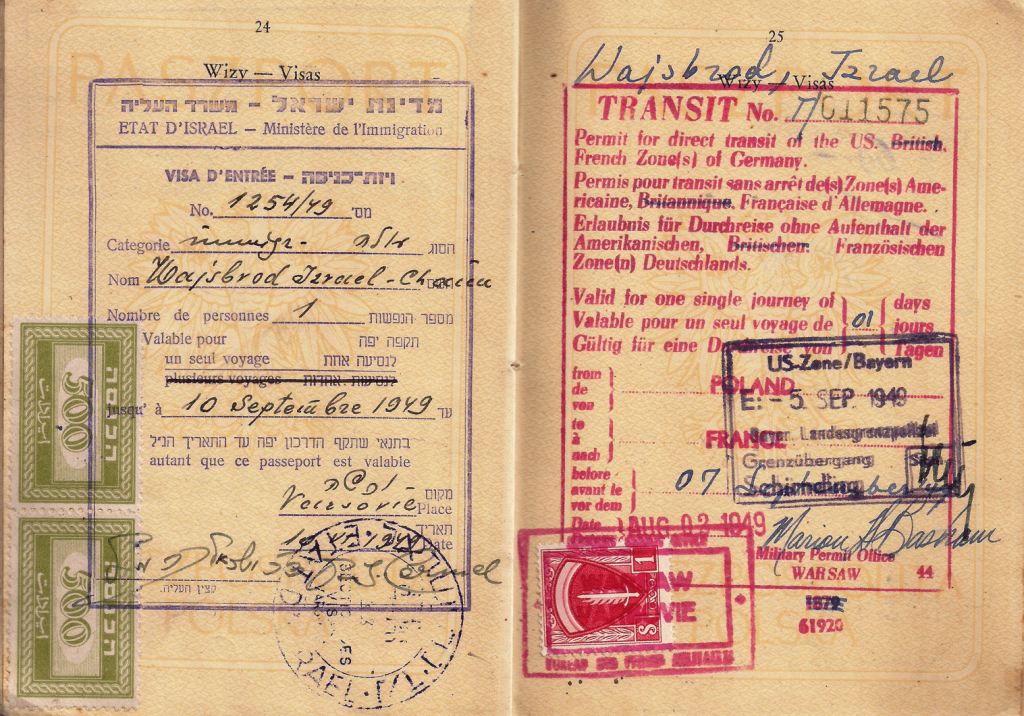 24
Wizy — Visas
מדינת ישראל – משרד העליה
ETAT D'ISRAEL – Ministère de l'Immigration
VISA D'ENTRÉE – ויזת-כניסה
No. 1254/49 מס'
Categorie immigr- עולה הסוג
Nom Wajsbrod Izrael-Chaim השם
Nombre de personnes 1 מספר הנפשות
Valable pour תקפה יפה
un seul voyage לנסיעה אחת
plusieurs voyages לנסיעות אחדות
jusqu' à 10 Septembre 1949 עד
בתנאי שתקף הדרכון יפה עד התאריך הנ"ל
autant que ce passeport est valable
מקום
Varsovie Place
תאריך
1949 Date
קצין העליה
הכנסה
500
הכנסה
500
25
Wajsbrod, Izrael
Wizy — Visas
TRANSIT No. 7/011575
Permit for direct transit of the US. British,
French Zone(s) of Germany.
Permis pour transit sans arrêt de(s) Zone(s) Ame-
ricaine, Britannique, Française d'Allemagne.
Erlaubnis für Durchreise ohne Aufenthalt der
Amerikanischen, Britischen, Französischen
Zone(n) Deutschlands.
Valid for one single journey of 01 days
Valable pour un seul voyage de jours
Gültig für eine Durchreise von Tagen
from
de POLAND
von
to
à FRANCE
nach
before
avant le 07 September
vor dem
Date AUG 02 1949
US-Zone/Bayern
E: - 5. SEP. 1949
Bayer. Landesgrenzpolizei
Grenzübergang
Schirnding
Military Permit Office
WARSAW 44
1879
61920
1
S